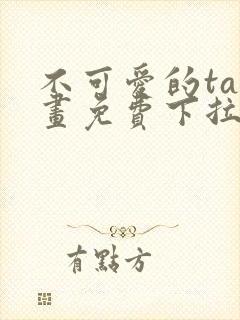 不可愛的ta
畫免費下拉
有點方